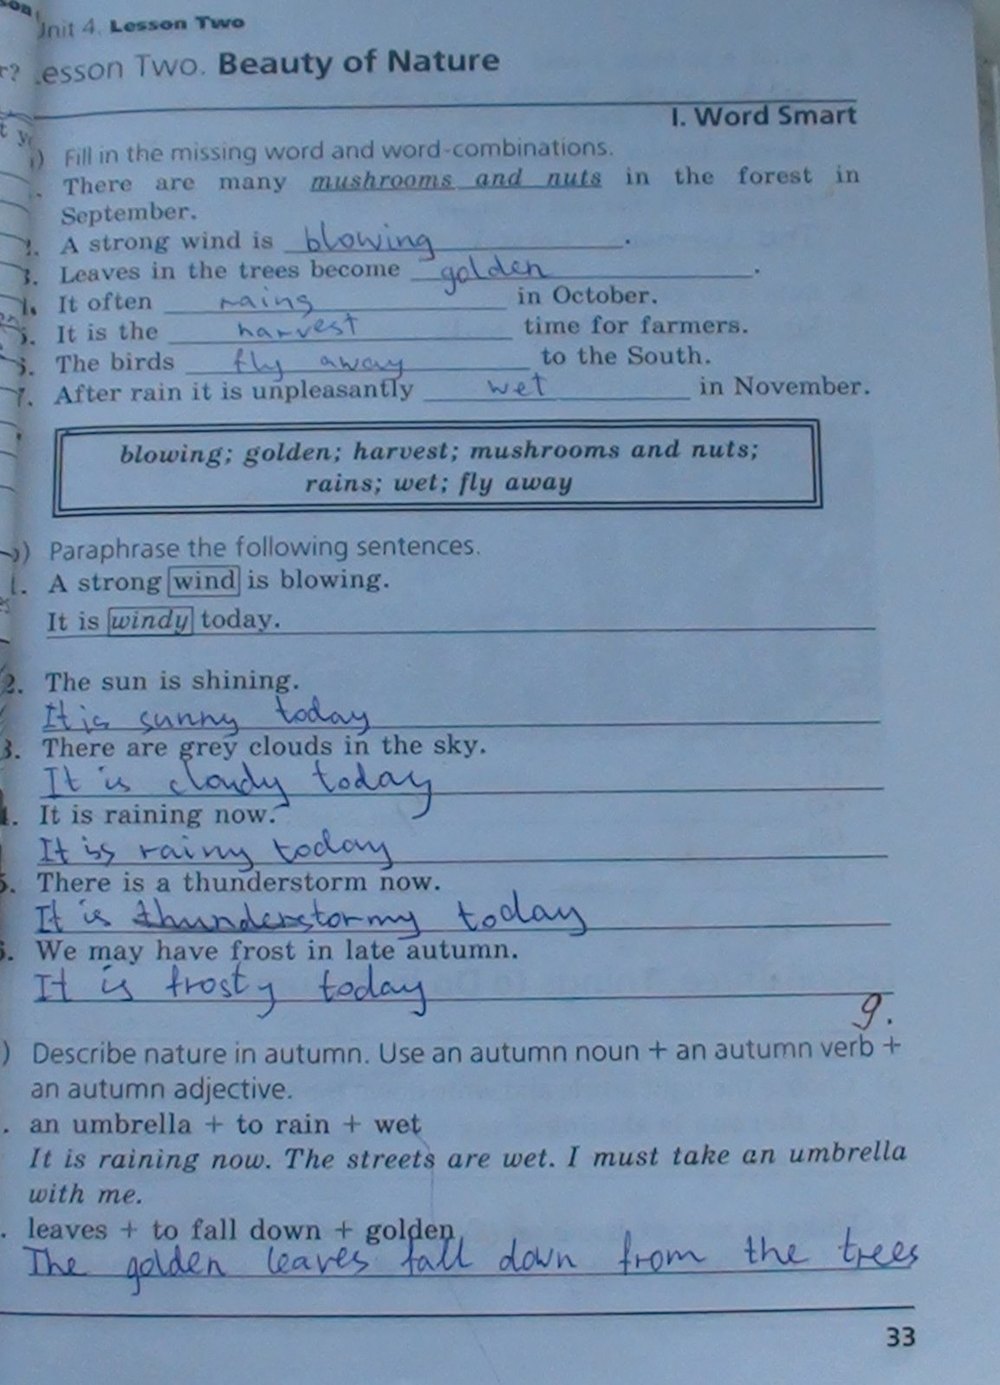 Unit 4. Lesson Two
Lesson Two. Beauty of Nature
I. Word Smart
) Fill in the missing word and word-combinations.
. There are many mushrooms and nuts in the forest in
September.
2. A strong wind is blowing.
3. Leaves in the trees become golden.
4. It often rains in October.
5. It is the harvest time for farmers.
6. The birds fly away to the South.
7. After rain it is unpleasantly wet in November.
blowing; golden; harvest; mushrooms and nuts;
rains; wet; fly away
b) Paraphrase the following sentences.
1. A strong wind is blowing.
It is windy today.
2. The sun is shining.
It is sunny today
3. There are grey clouds in the sky.
It is cloudy today
4. It is raining now.
It is rainy today
5. There is a thunderstorm now.
It is thunderstormy today
6. We may have frost in late autumn.
It is frosty today
9.
) Describe nature in autumn. Use an autumn noun + an autumn verb +
an autumn adjective.
. an umbrella + to rain + wet
It is raining now. The streets are wet. I must take an umbrella
with me.
. leaves + to fall down + golden
The golden leaves fall down from the trees
33